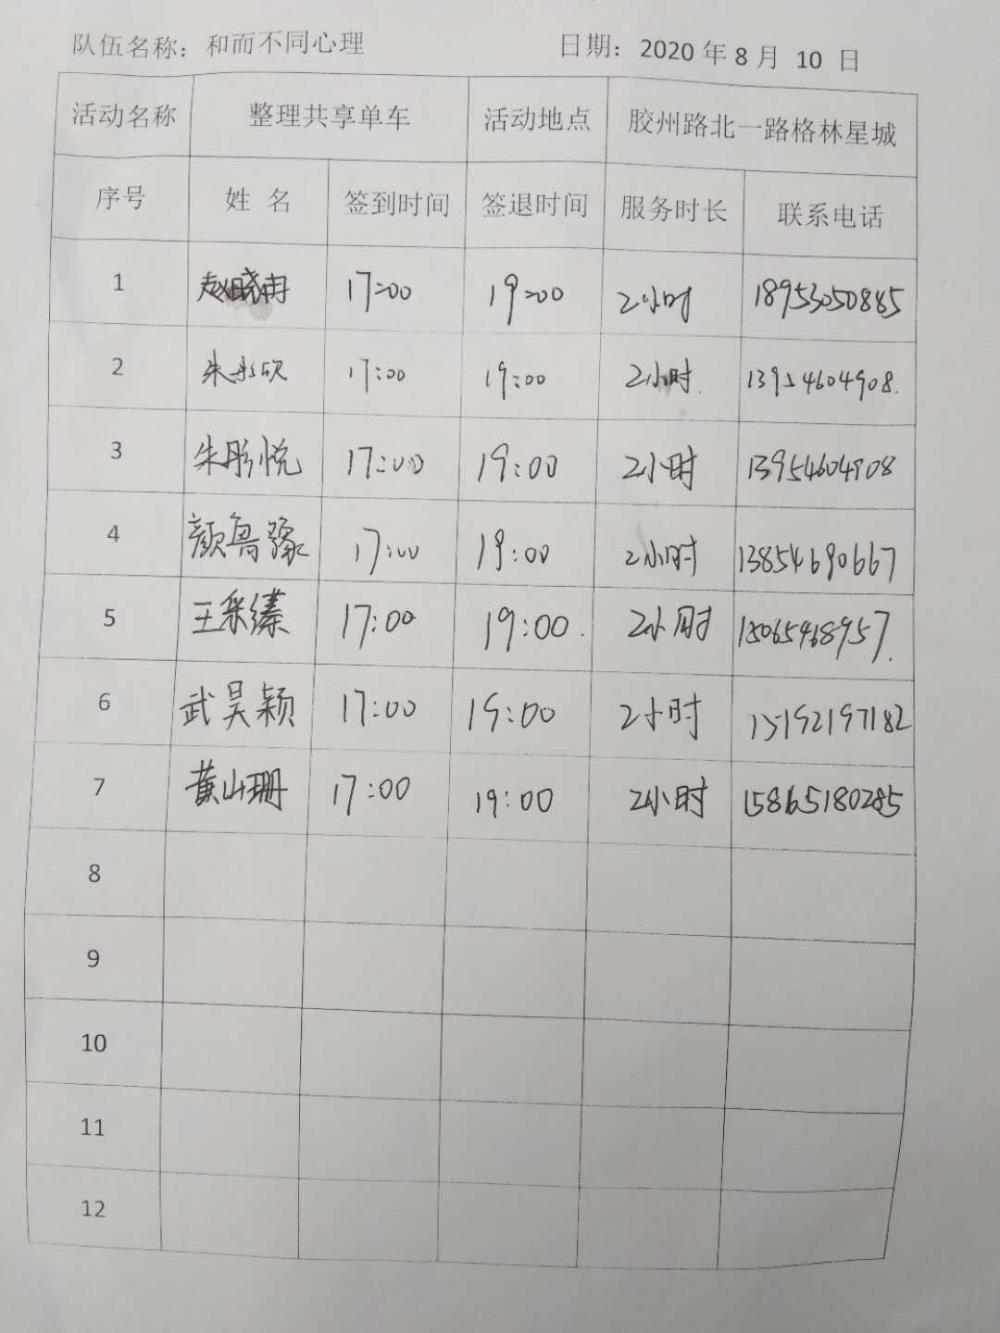 队伍名称：和而不同心理 日期：2020 年 8 月 10 日
活动名称 整理共享单车 活动地点 胶州路北一路格林星城
序号 姓 名 签到时间 签退时间 服务时长 联系电话
1 赵晓冉 17:00 19:00 2小时 18953050885
2 朱彤欣 17:00 19:00 2小时. 13954604908.
3 朱彤悦 17:00 19:00 2小时 13954604908
4 颜鲁豫 17:00 19:00 2小时 13854690667
5 王采蓁 17:00 19:00. 2小时 15065468957.
6 武昊颖 17:00 19:00 2小时 15192197182
7 黄山珊 17:00 19:00 2小时 15865180285
8
9
10
11
12